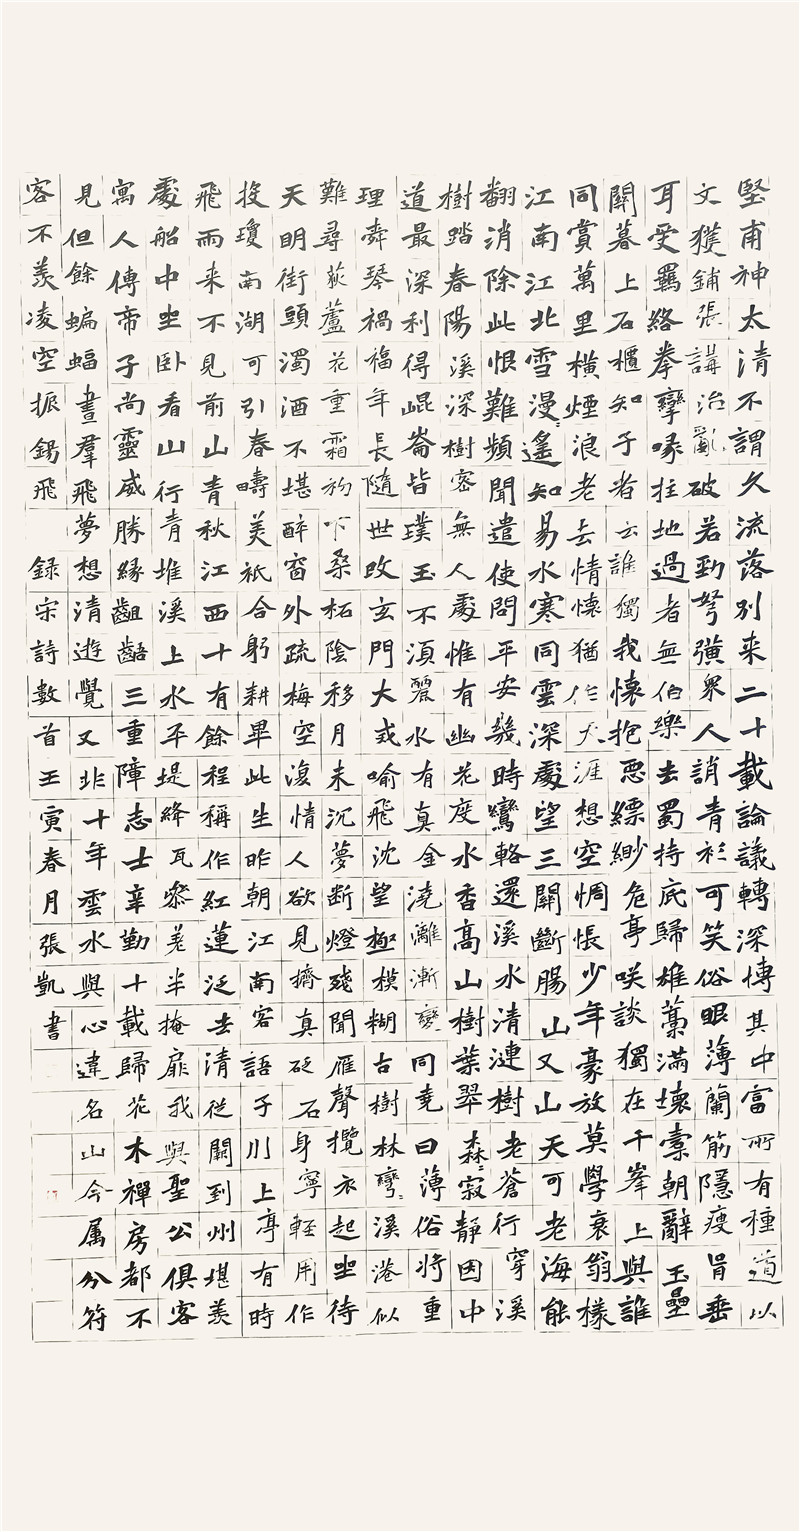 堅甫神太清不謂久流落別来二十載論議轉深博其中富所有種道以
文獲鋪張講治亂破若勁弩彍衆人誚青衫可笑俗眼薄蘭筋隱瘦骨垂
耳受羈絡拳攣啄柱地過者無伯樂去蜀持底歸雄藁滿壞橐朝辭玉壘
關暮上石櫃知子者云誰獨我懷抱惡縹緲危亭咲談獨在千峯上與誰
同賞萬里橫煙浪老去情懷猶作天涯想空惆悵少年豪放莫學衰翁樣
江南江北雪漫漫遙知易水寒同雲深處望三關斷腸山又山天可老海能
翻消除此恨難頻聞遣使問平安幾時鸞輅還溪水清漣樹老蒼行穿溪
樹踏春陽溪深樹密無人處惟有幽花度水香高山樹葉翠森森寂靜因中
道最深利得崐崙皆璞玉不湏麗水有真金澆漓漸變同堯曰薄俗將重
理舜琴禍福年長隨世改玄門大或喻飛沈望極模糊古樹林彎彎溪港似
難尋荻蘆花重霜初下桑柘陰移月未沉夢断燈殘聞雁聲攬衣起坐待
天明街頭濁酒不堪醉窗外疏梅空復情人欲見擠真砭石身寧輕用作
投瓊南湖可引春疇美祇合躬耕畢此生昨朝江南客語子川上亭有時
飛雨来不見前山青秋江西十有餘程稱作紅蓮泛去清從闢到州堪羨
處船中坐卧看山行青堆溪上水平堤絳瓦參差半掩扉我與聖公俱客
寓人傳帝子尚靈威勝緣齟齬三重障志士辛勤十載歸花木禪房都不
見但餘蝙蝠晝羣飛夢想清遊覺又非十年雲水與心違名山今属分符
客不羨凌空振錫飛 録宋詩數首壬寅春月張凱書